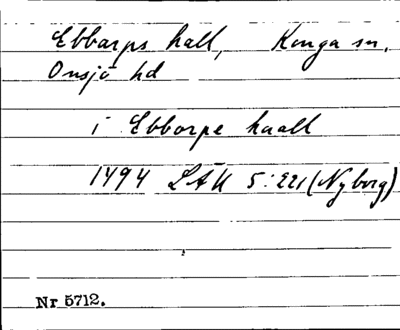 Ebbarps hall, Konga sn,
Onsjö hd
i Ebborpe haall
1494 LÄU 5:221 (Nyborg)
Nr 5712.